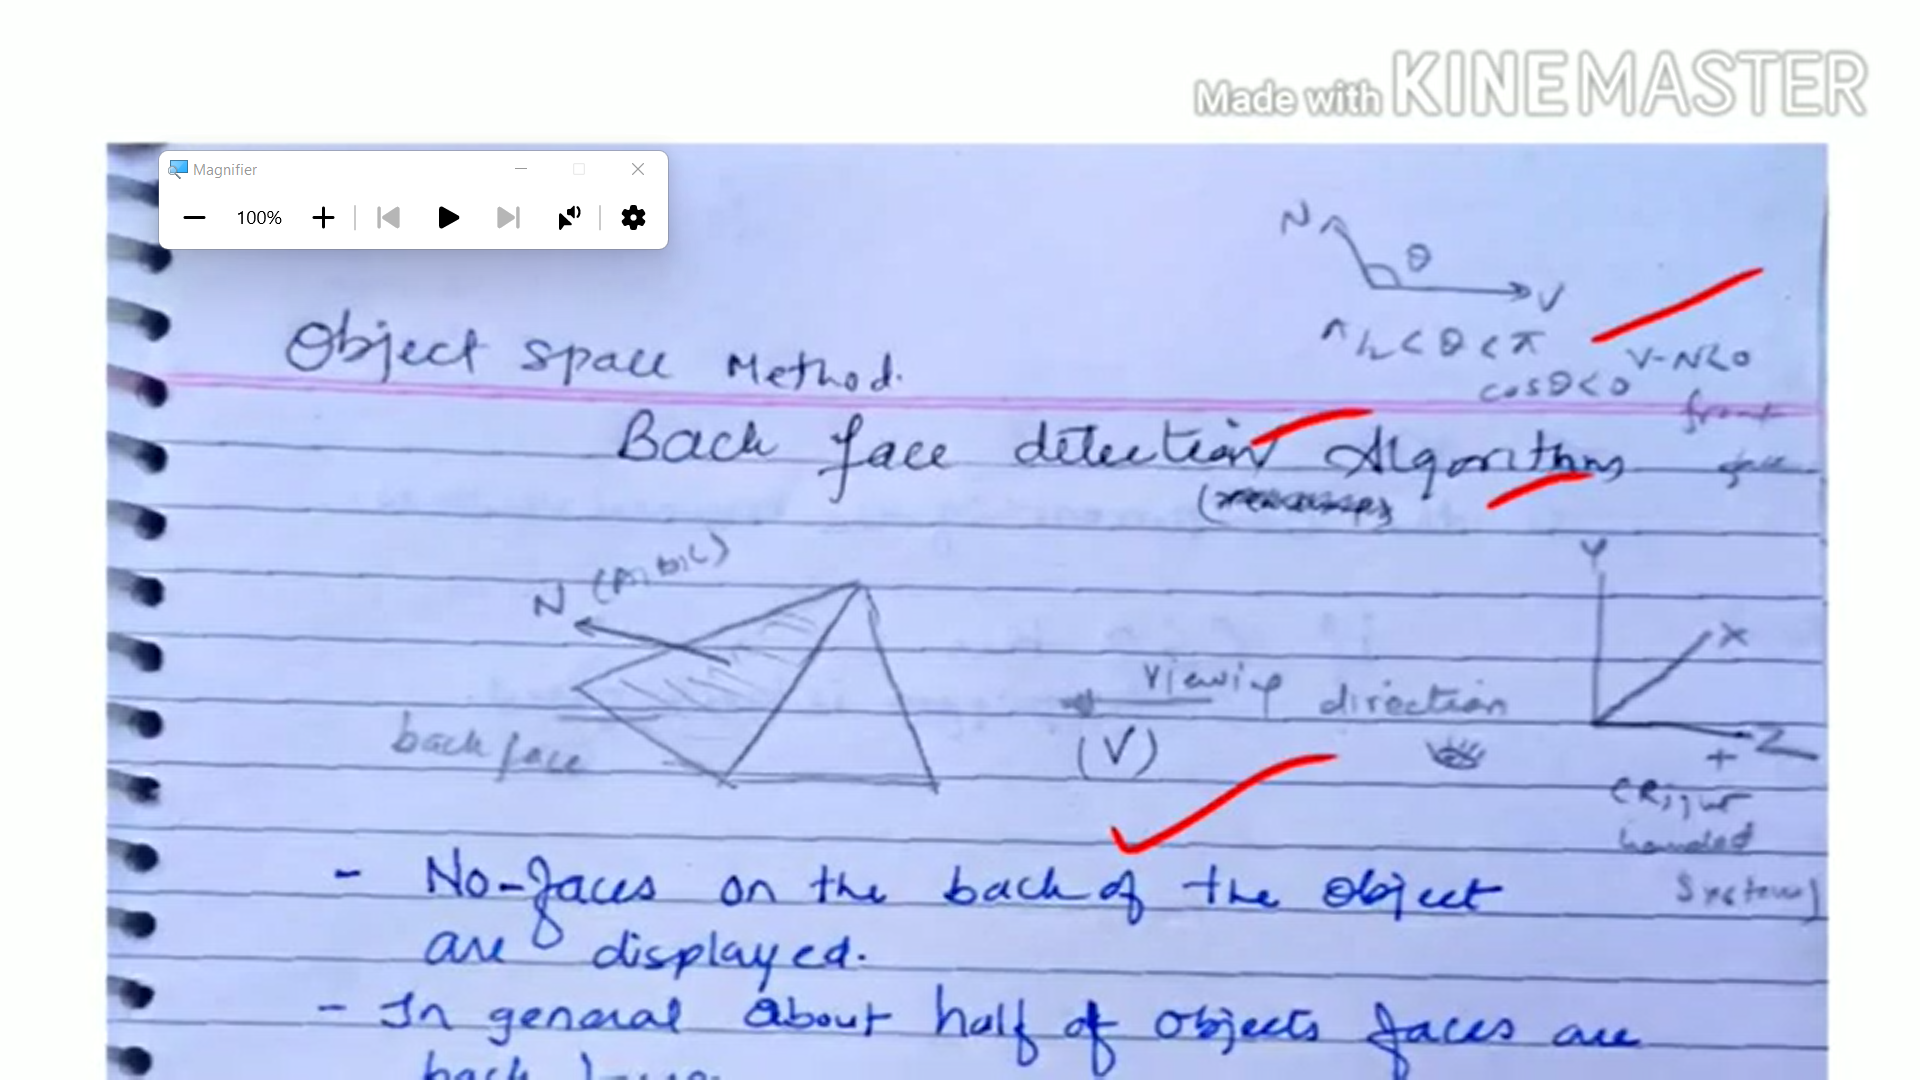 Made with KINEMASTER
Magnifier
100%
N
θ
V
π/2 < θ < π
V-N<0
cosθ<0
front
Object space Method.
Back face detection Algorithm
N (A,B,C)
Y
X
Z
+
viewing direction
(V)
back face
(Right
handed
System)
- No-faces on the back of the object
are displayed.
- In general about half of objects faces are
back